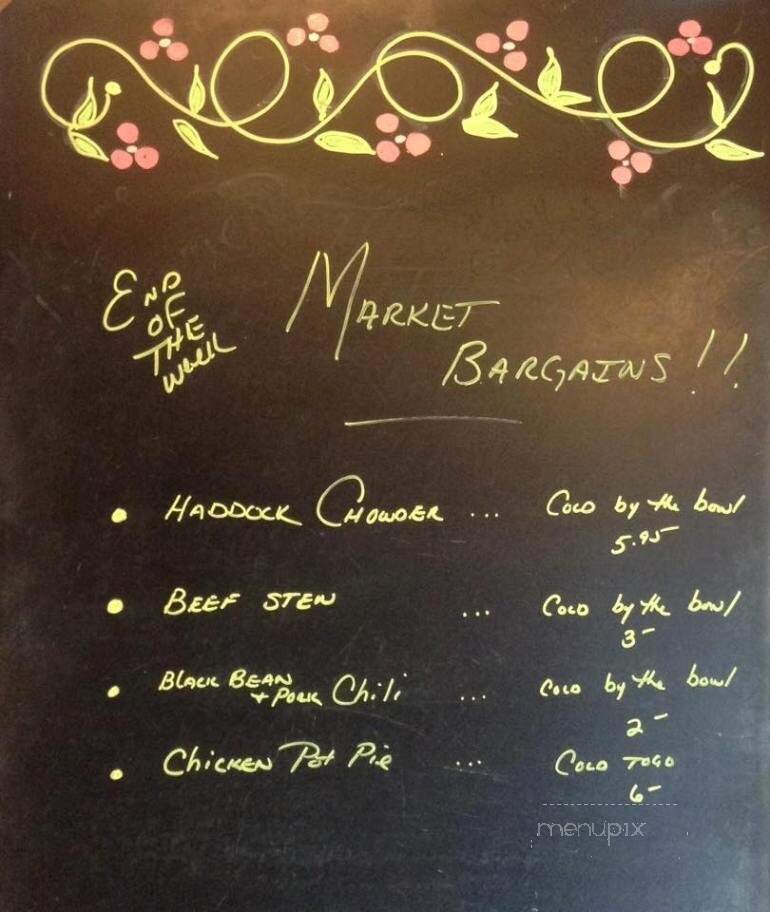 END
OF
THE
WEEK
MARKET
BARGAINS!!
• HADDOCK CHOWDER ... COLD by the bowl
5.95
• BEEF STEW ... COLD by the bowl
3-
• BLACK BEAN
+ PORK Chili ... COLD by the bowl
2-
• CHICKEN Pot Pie ... COLD TOGO
6-
menupix